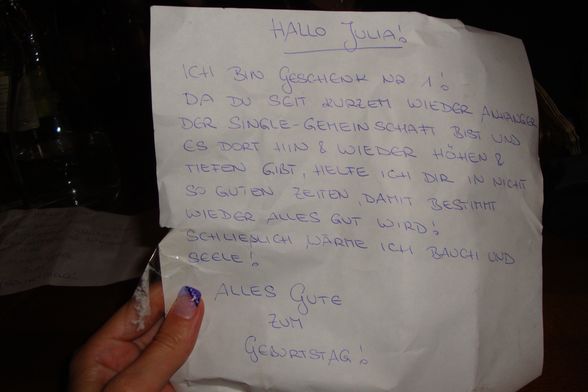 HALLO JULIA!
ICH BIN GESCHENK NR 1!
DA DU SEIT KURZEM WIEDER ANHÄNGER
DER SINGLE-GEMEINSCHAFT BIST UND
ES DORT HIN & WIEDER HÖHEN &
TIEFEN GIBT, HELFE ICH DIR IN NICHT
SO GUTEN ZEITEN, DAMIT BESTIMMT
WIEDER ALLES GUT WIRD!
SCHLIEßLICH WÄRME ICH BAUCH UND
SEELE!
ALLES GUTE
ZUM
GEBURTSTAG!